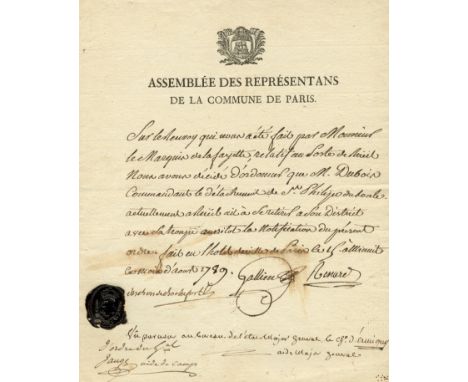 ASSEMBLÉE DES REPRÉSENTANS
DE LA COMMUNE DE PARIS.
Sur le renvoy qui nous a été fait par Monsieur
le Marquis de la fayette, relatif au Poste de
Nous avons décidé d'ordonner que M. Dubois
Commandant le détachement de St. Philippe du Roule
actuellement a ait a se retirer a son district
avec sa troupe aussitot la Notification du present
ordre, fait en l'hotel de ville de Paris le
d'aoust 1789.
Gallien Renard
Vu par nous au bureau de l'état Major general le
aide Major general
d'ordre du
aide de camp